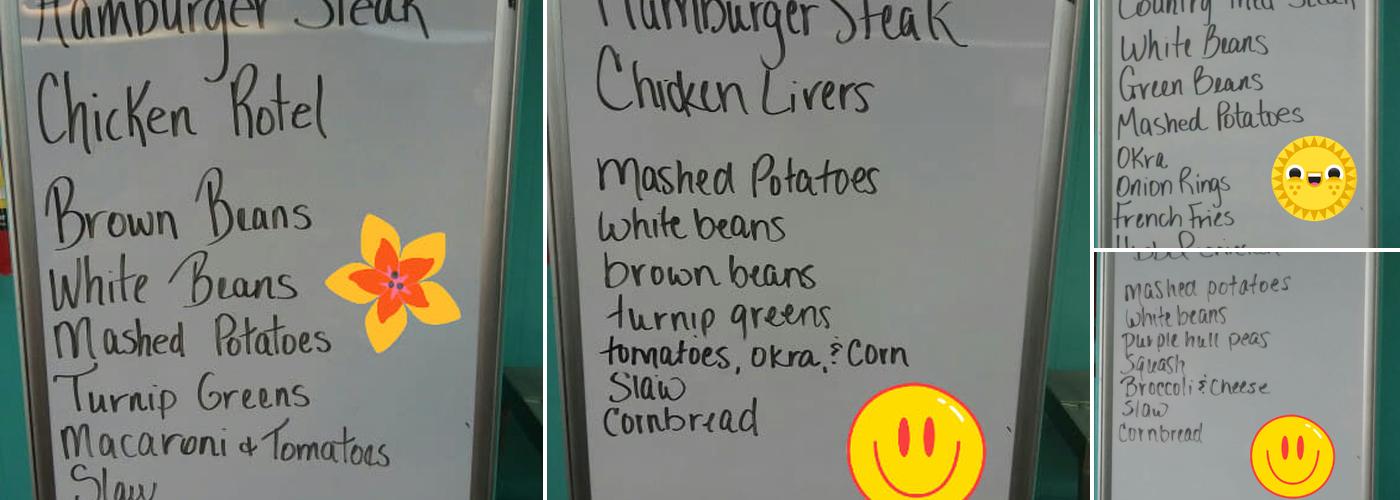 Hamburger Steak
Chicken Rotel
Brown Beans
White Beans
Mashed Potatoes
Turnip Greens
Macaroni & Tomatoes
Slaw
Hamburger Steak
Chicken Livers
Mashed Potatoes
white beans
brown beans
turnip greens
tomatoes, okra, & Corn
Slaw
Cornbread
Country Fried Steak
White Beans
Green Beans
Mashed Potatoes
Okra
Onion Rings
French Fries
mashed potatoes
white beans
purple hull peas
Squash
Broccoli & Cheese
Slaw
Cornbread